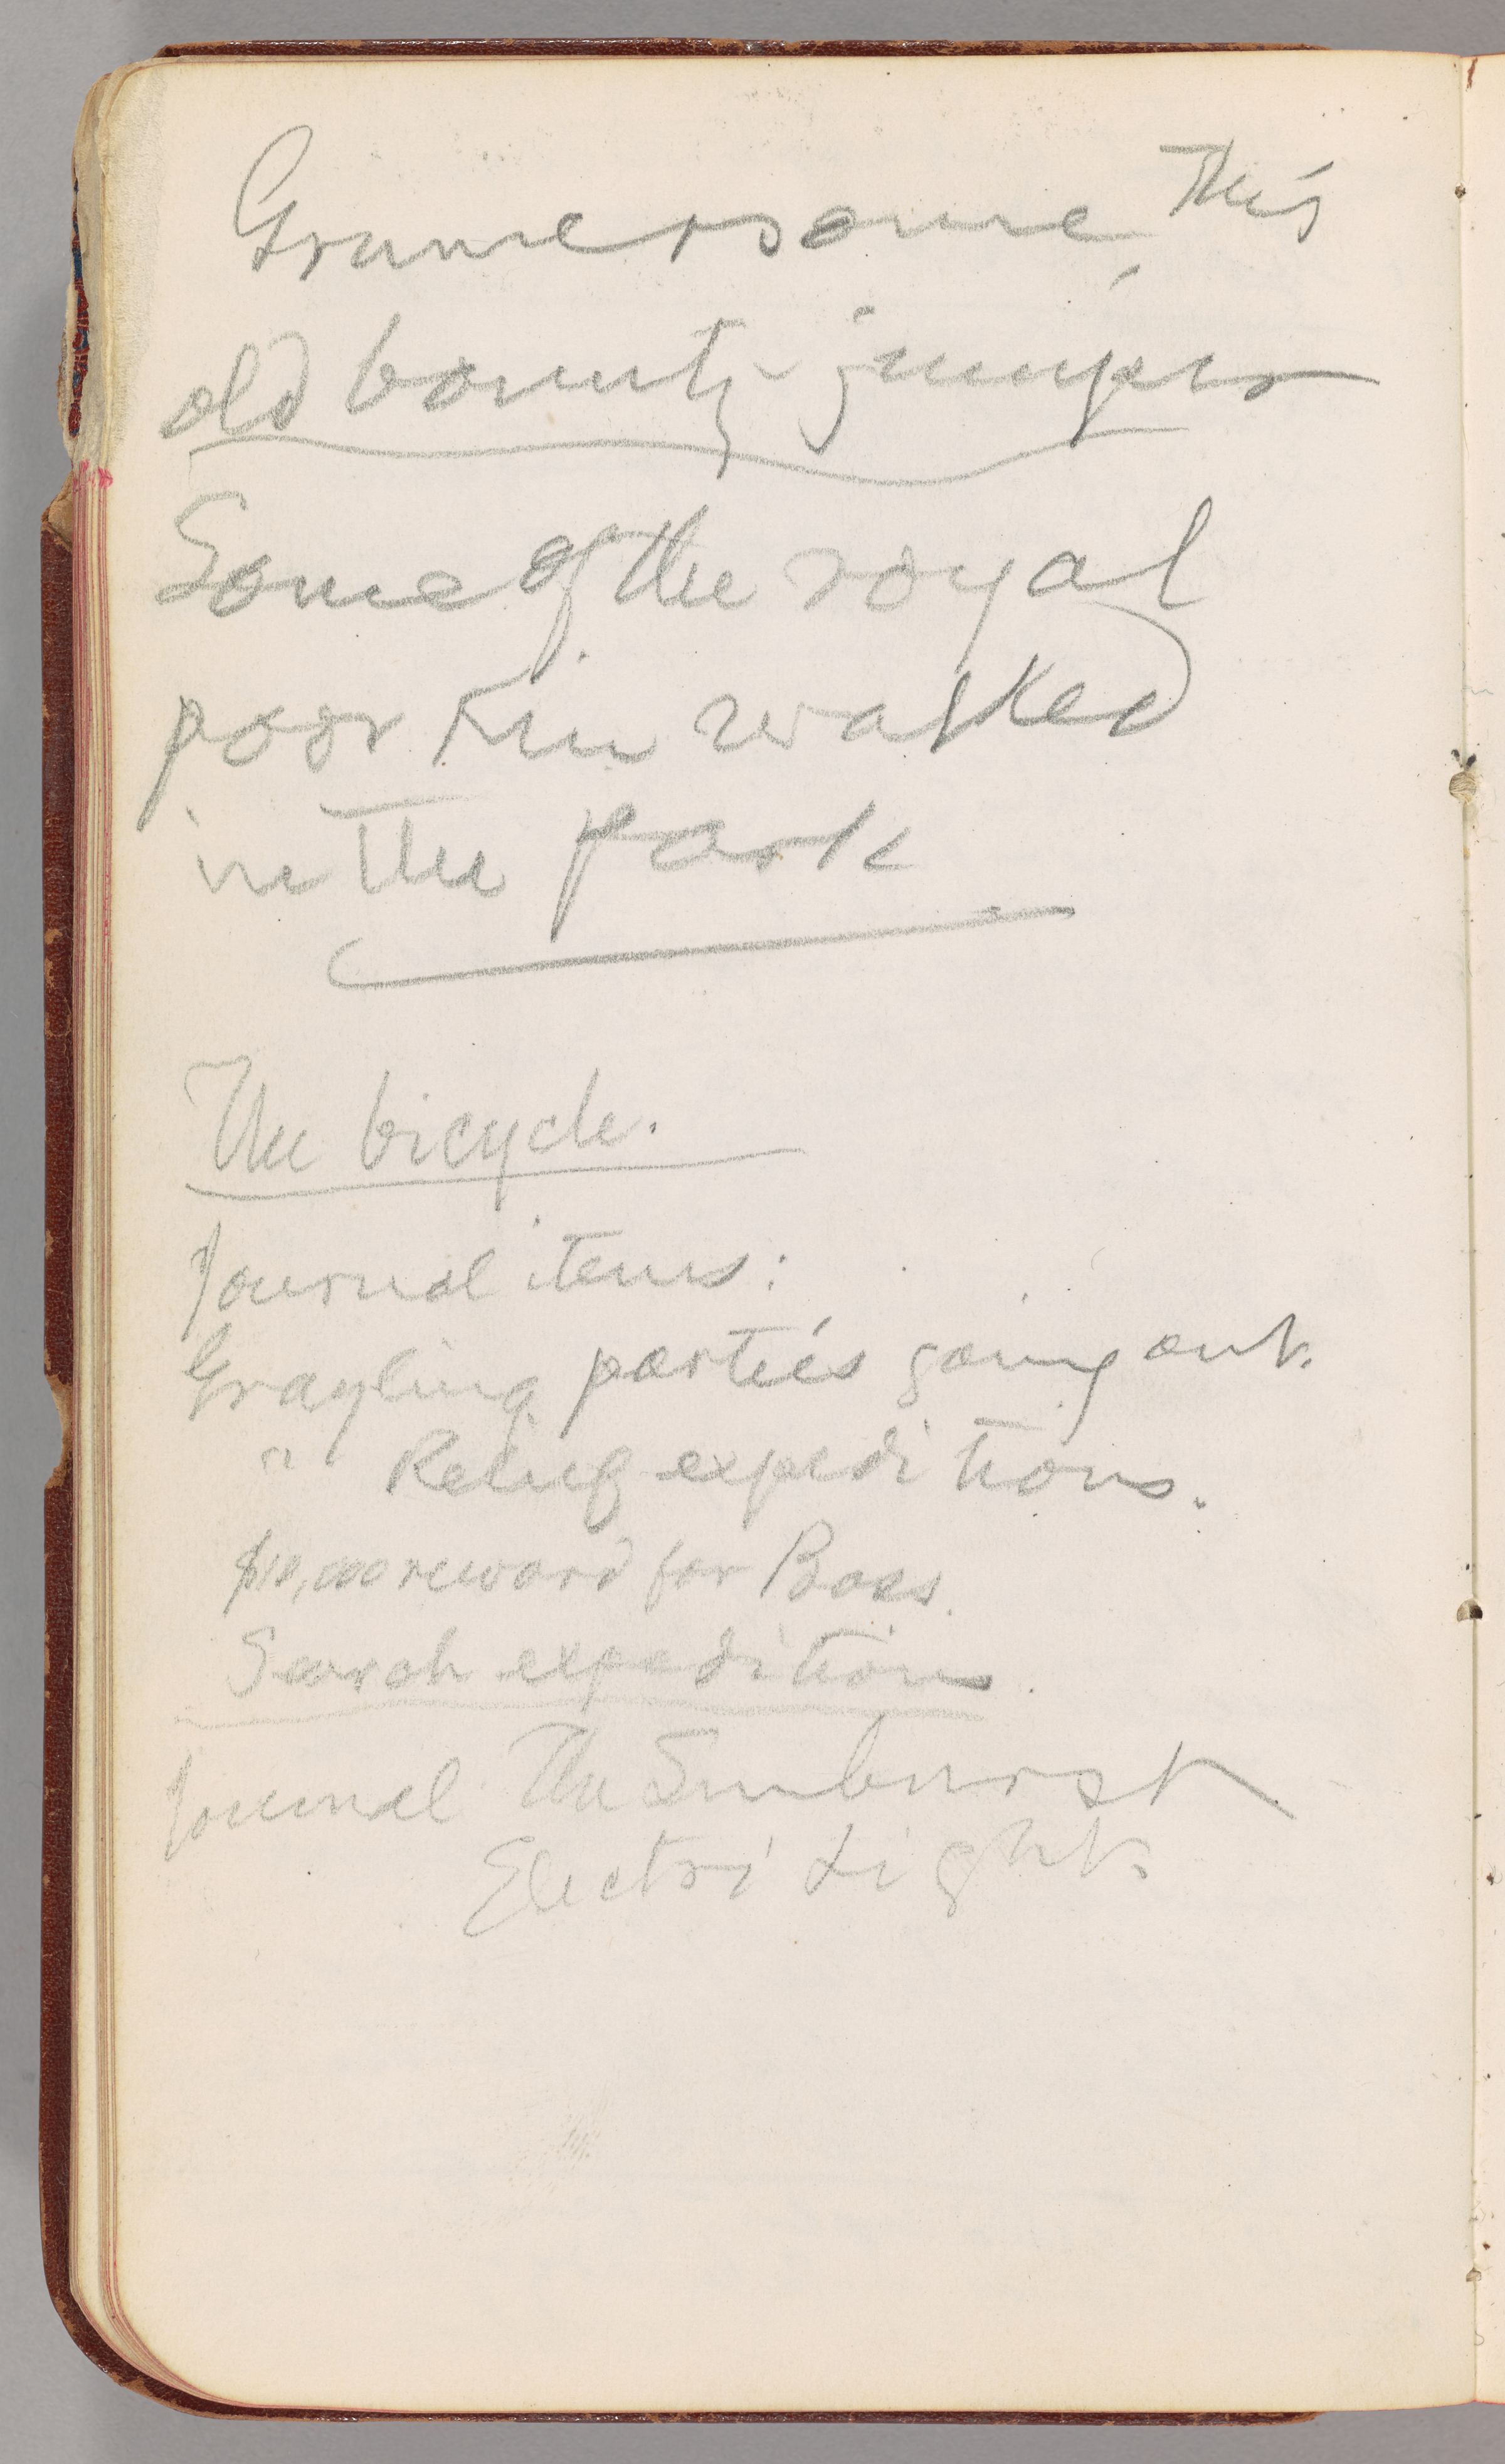 Gramersome This
old bounty-jumper
Some of the royal
poor kin walked
in the park
The bicycle.
Journal items:
Grayling parties going out.
" Relief expeditions.
$10,000 reward for Boss.
Search expeditions.
Journal The Sunburst
Electri Light.